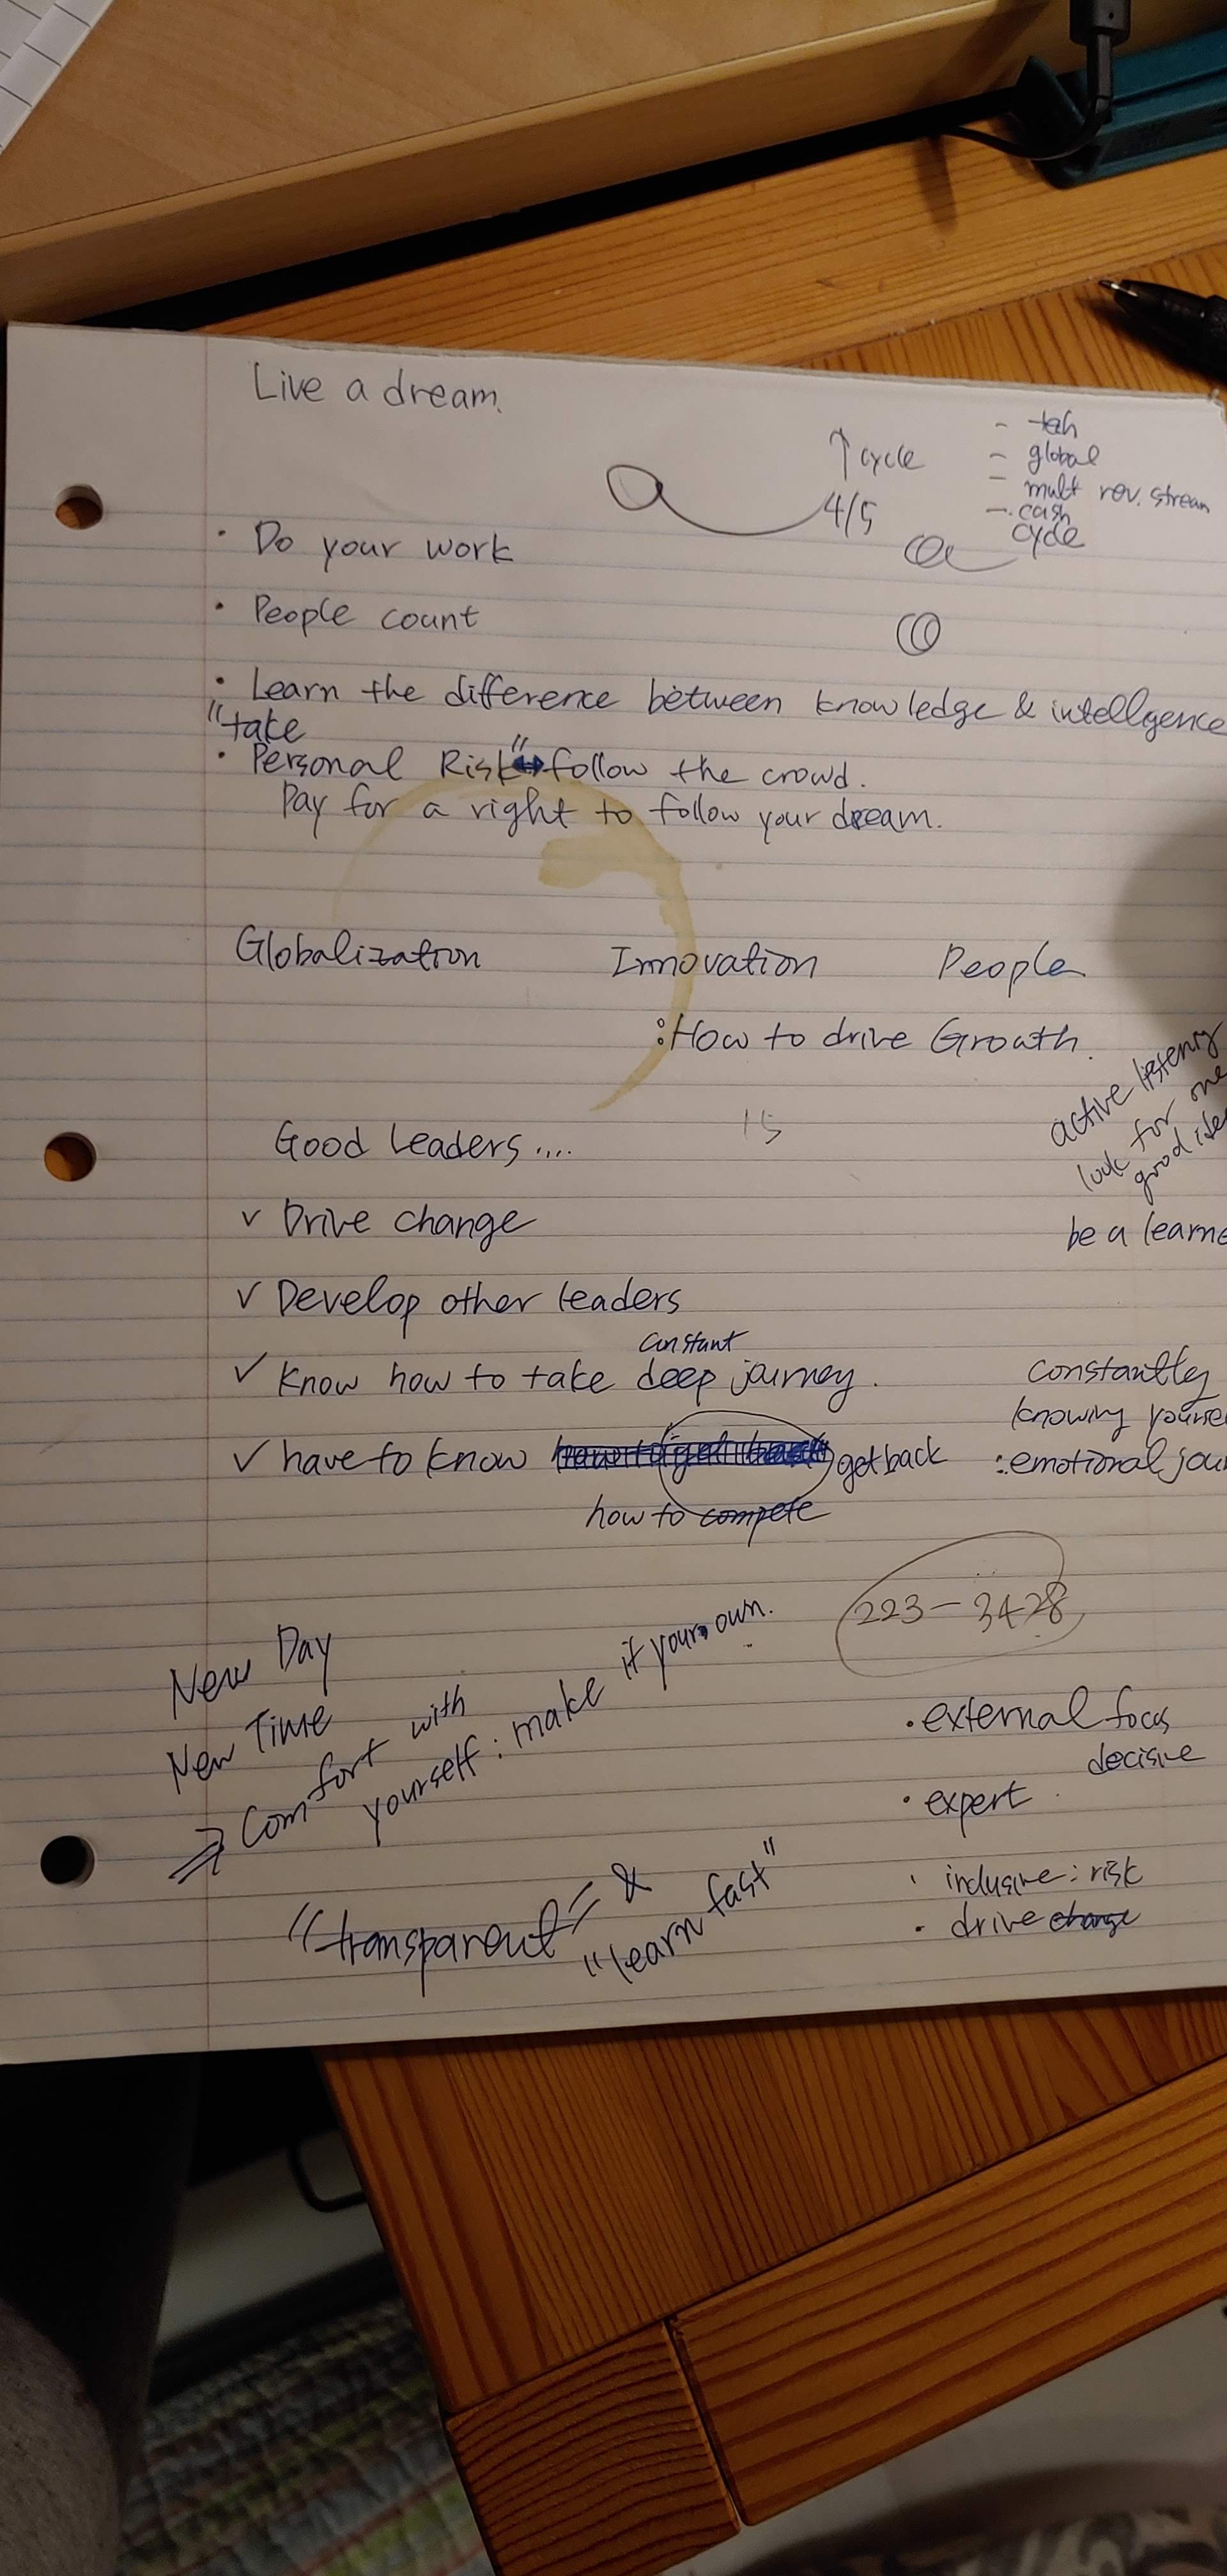 Live a dream.
↑ cycle
4/5
- tech
- global
- mult rev. stream
- cash
cycle
· Do your work
· People count
· Learn the difference between knowledge & intellgence
"take
· Personal Risk" ↔ follow the crowd.
Pay for a right to follow your dream.
Globalization Innovation People
: How to drive Growth.
15
active listening
look for one
good
be a
Good Leaders ....
✓ Drive change
✓ Develop other leaders
constant
✓ Know how to take deep journey.
✓ have to know get back
how to compete
constantly
knowing
: emotional
223-3428
New Day
New Time
⇒ Comfort with
yourself : make it your own.
"transparent" &
"learn fast"
· external focus
decisive
· expert
· inclusive : risk
· drive change